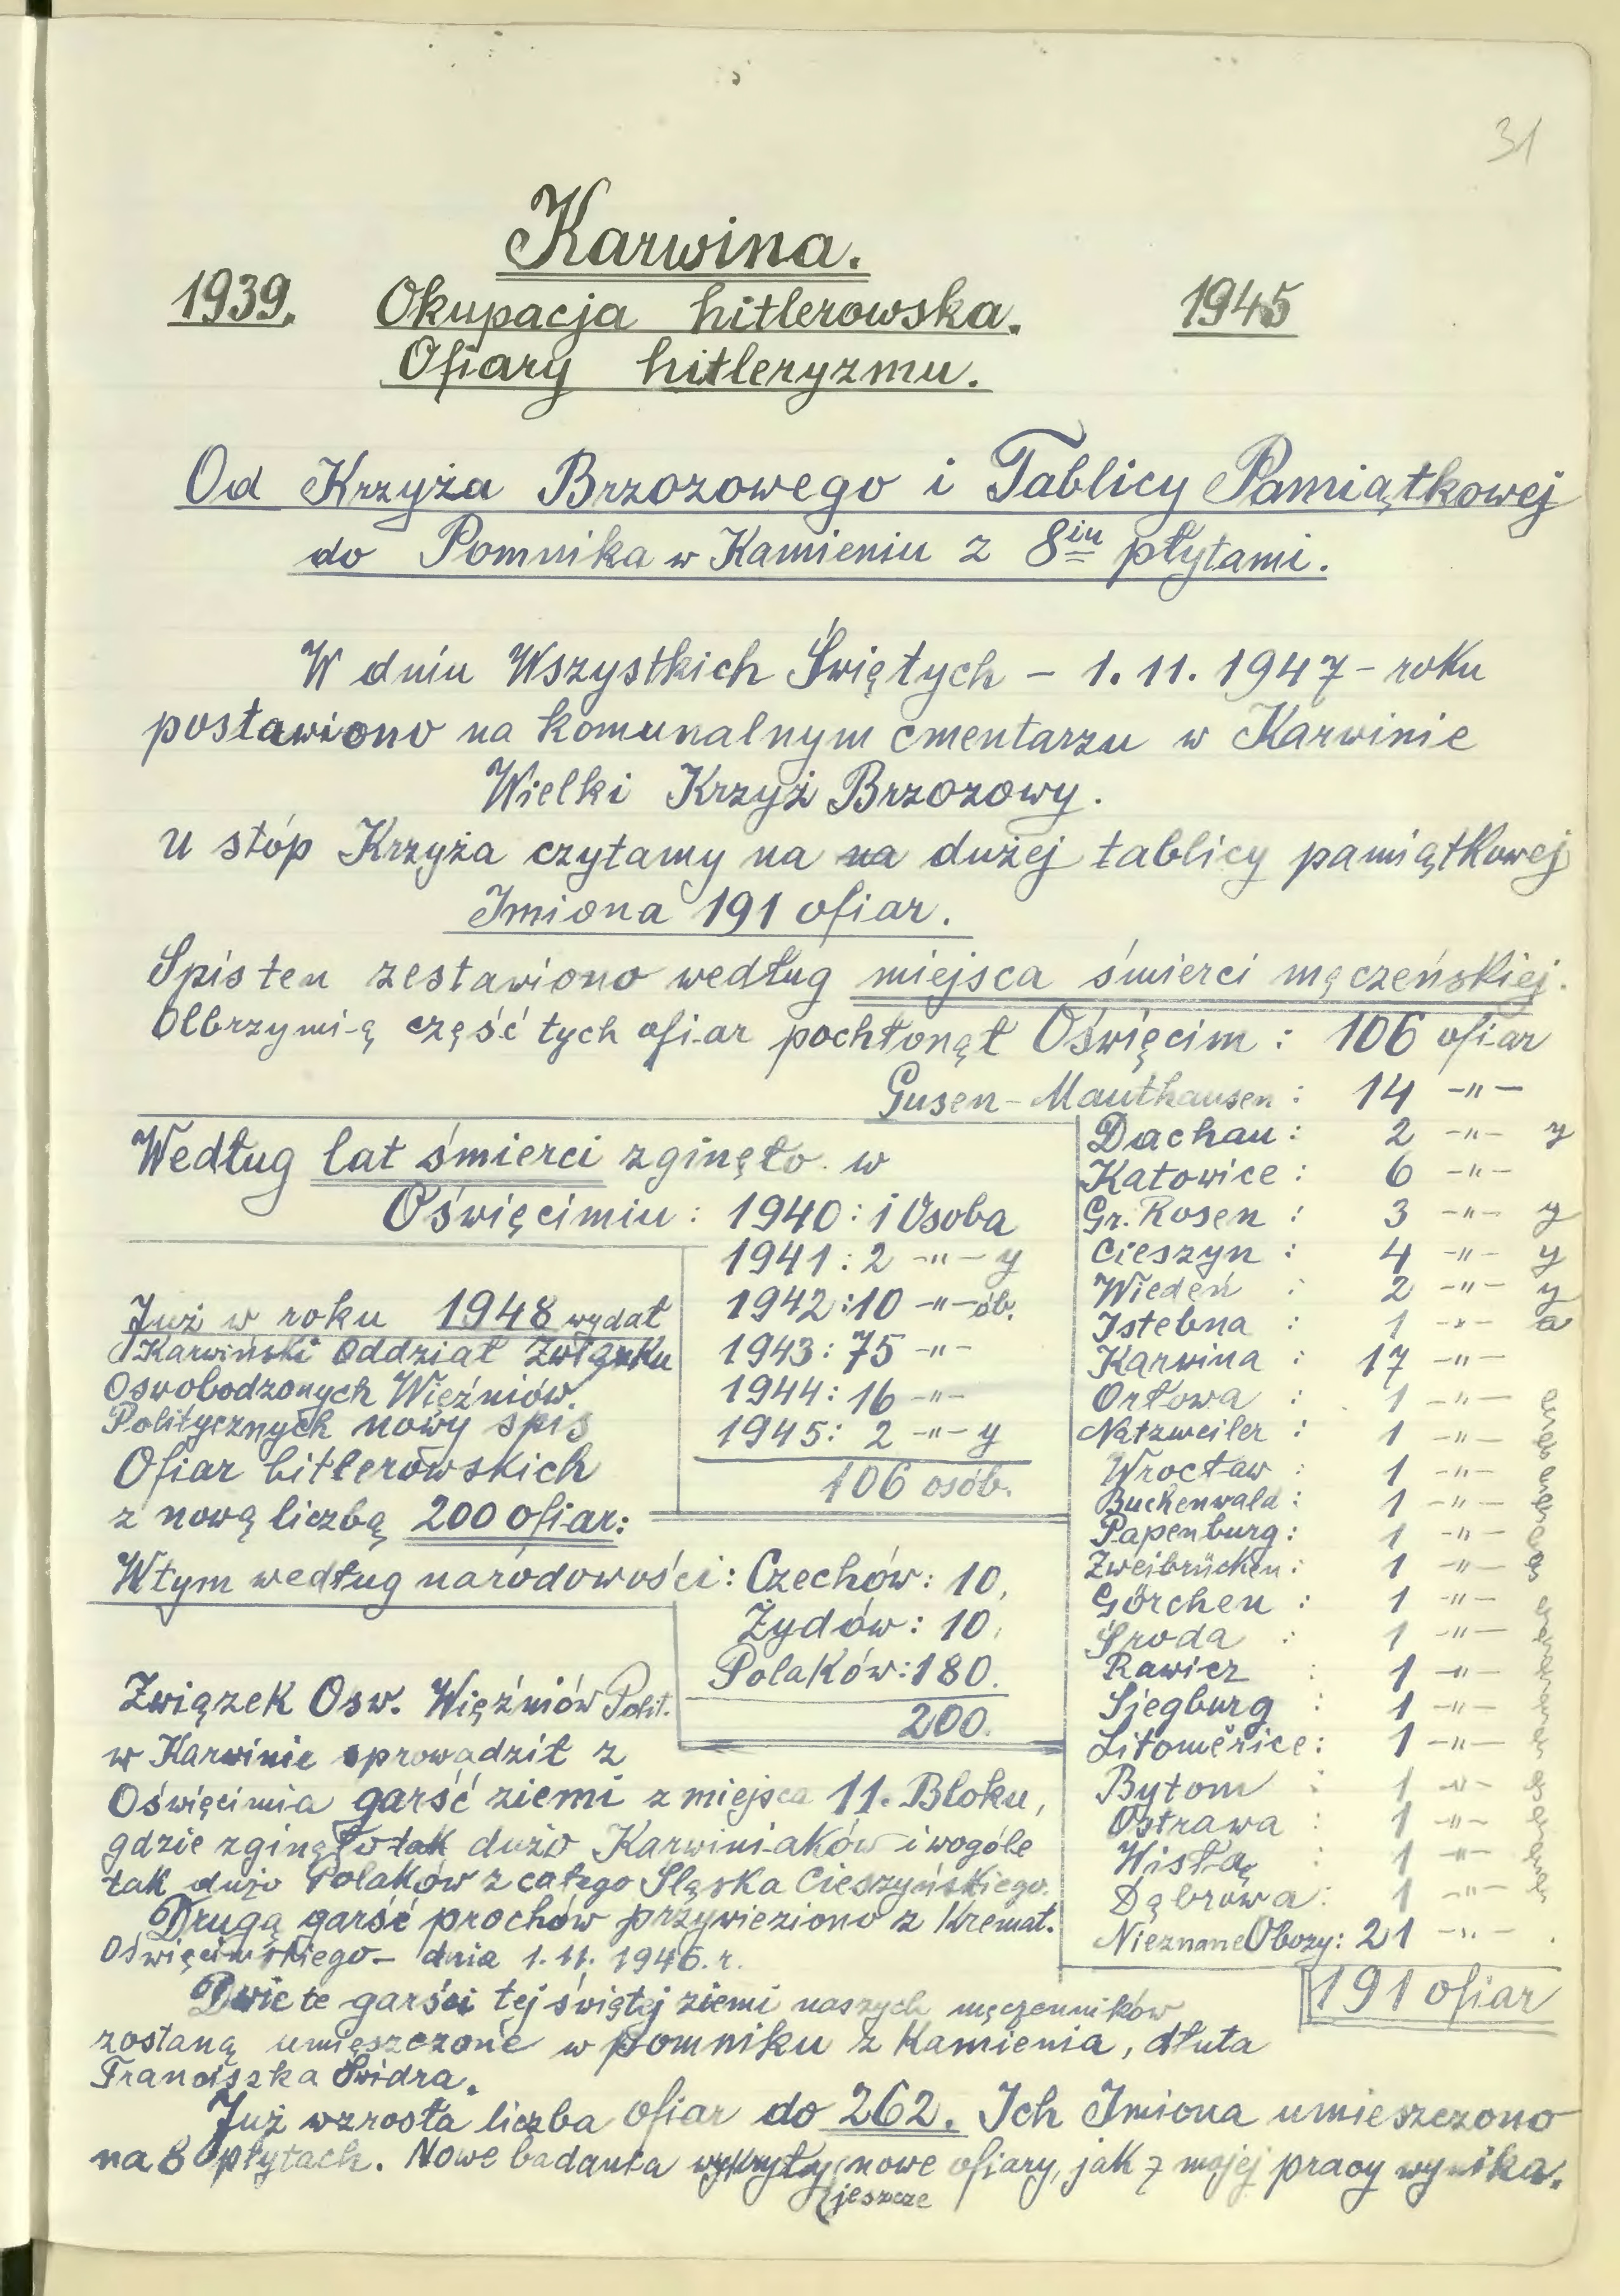 31
Karwina.
1939. Okupacja hitlerowska. 1945
Ofiary hitleryzmu.
Od Krzyża Brzozowego i Tablicy Pamiątkowej
do Pomnika w Kamieniu z 8iu płytami.
W dniu Wszystkich Świętych - 1. 11. 1947 - roku
postawiono na komunalnym cmentarzu w Karwinie
Wielki Krzyż Brzozowy.
U stóp Krzyża czytamy na na dużej tablicy pamiątkowej
Imiona 191 ofiar.
Spis ten zestawiono według miejsca śmierci męczeńskiej.
Olbrzymią część tych ofiar pochłonął Oświęcim : 106 ofiar
Gusen - Mauthausen : 14 -"-
Dachau : 2 -"- y
Katowice : 6 -"-
Gr. Rosen : 3 -"- y
Cieszyn : 4 -"- y
Wiedeń : 2 -"- y
Istebna : 1 -"- a
Karwina : 17 -"-
Orłowa : 1 -"- a
Natzweiler : 1 -"- a
Wrocław : 1 -"- a
Buchenwald : 1 -"- a
Papenburg : 1 -"- a
Zweibrücken : 1 -"- a
Görchen : 1 -"- a
Środa : 1 -"- a
Rawicz : 1 -"- a
Siegburg : 1 -"- a
Litoměřice : 1 -"- a
Bytom : 1 -"- a
Ostrawa : 1 -"- a
Wisłą : 1 -"- a
Dąbrowa : 1 -"- a
Nieznane Obozy : 21 -"-
191 ofiar
Według lat śmierci zginęło w
Oświęcimiu : 1940 : 1 Osoba
1941 : 2 -"- y
1942 : 10 -"- ób.
1943 : 75 -"-
1944 : 16 -"-
1945 : 2 -"- y
106 osób.
Już w roku 1948 wydał
Karwiński Oddział Związku
Oswobodzonych Więźniów.
Politycznych nowy spis
Ofiar hitlerowskich
z nową liczbą 200 ofiar:
W tym według narodowości : Czechów : 10,
Żydów : 10,
Polaków : 180.
200.
Związek Osw. Więźniów Polit.
w Karwinie sprowadził z
Oświęcimia garść ziemi z miejsca 11. Bloku,
gdzie zginęło tak dużo Karwiniaków i wogóle
tak dużo Polaków z całego Śląska Cieszyńskiego.
Drugą garść prochów przywieziono z Kremat.
Oświęcimskiego - dnia 1. 11. 1946. r.
Dwie te garści tej świętej ziemi naszych męczenników
zostaną umieszczone w pomniku z Kamienia, dłuta
Franciszka Świdra.
Już wzrosła liczba ofiar do 262. Ich Imiona umieszczono
na 8 płytach. Nowe badania wykryły nowe ofiary, jak z mojej pracy wynika.
jeszcze